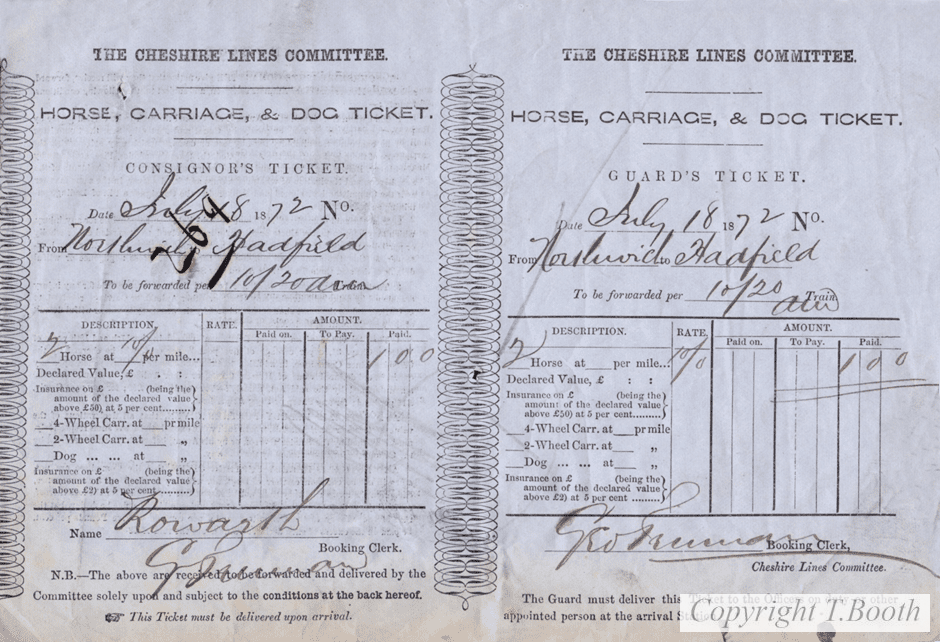 THE CHESHIRE LINES COMMITTEE.
HORSE, CARRIAGE, & DOG TICKET.
CONSIGNOR'S TICKET.
Date July 18 1872 No.
From Northwich to Hadfield
To be forwarded per 10/20 am Train
DESCRIPTION. RATE. AMOUNT.
Paid on. To Pay. Paid.
2 Horse at 10/ per mile... 1 0 0
Declared Value, £ : :
Insurance on £ (being the
amount of the declared value
above £50) at 5 per cent.........)
4-Wheel Carr. at pr mile
2-Wheel Carr. at „
Dog ... ... at „
Insurance on £ (being the
amount of the declared value
above £2) at 5 per cent .........)
Name Rowarth
G Freeman
Booking Clerk.
N.B.—The above are received to be forwarded and delivered by the
Committee solely upon and subject to the conditions at the back hereof.
This Ticket must be delivered upon arrival.
THE CHESHIRE LINES COMMITTEE.
HORSE, CARRIAGE, & DOG TICKET.
GUARD'S TICKET.
Date July 18 1872 No.
From Northwich to Hadfield
To be forwarded per 10/20 am Train
DESCRIPTION. RATE. AMOUNT.
Paid on. To Pay. Paid.
2 Horse at per mile... 10/0 1 0 0
Declared Value, £ : :
Insurance on £ (being the
amount of the declared value
above £50) at 5 per cent.........)
4-Wheel Carr. at pr mile
2-Wheel Carr. at „
Dog ... ... at „
Insurance on £ (being the
amount of the declared value
above £2) at 5 per cent .........)
Geo Freeman
Booking Clerk,
Cheshire Lines Committee.
The Guard must deliver this Ticket to the Officer on duty or other
appointed person at the arrival
Copyright T.Booth